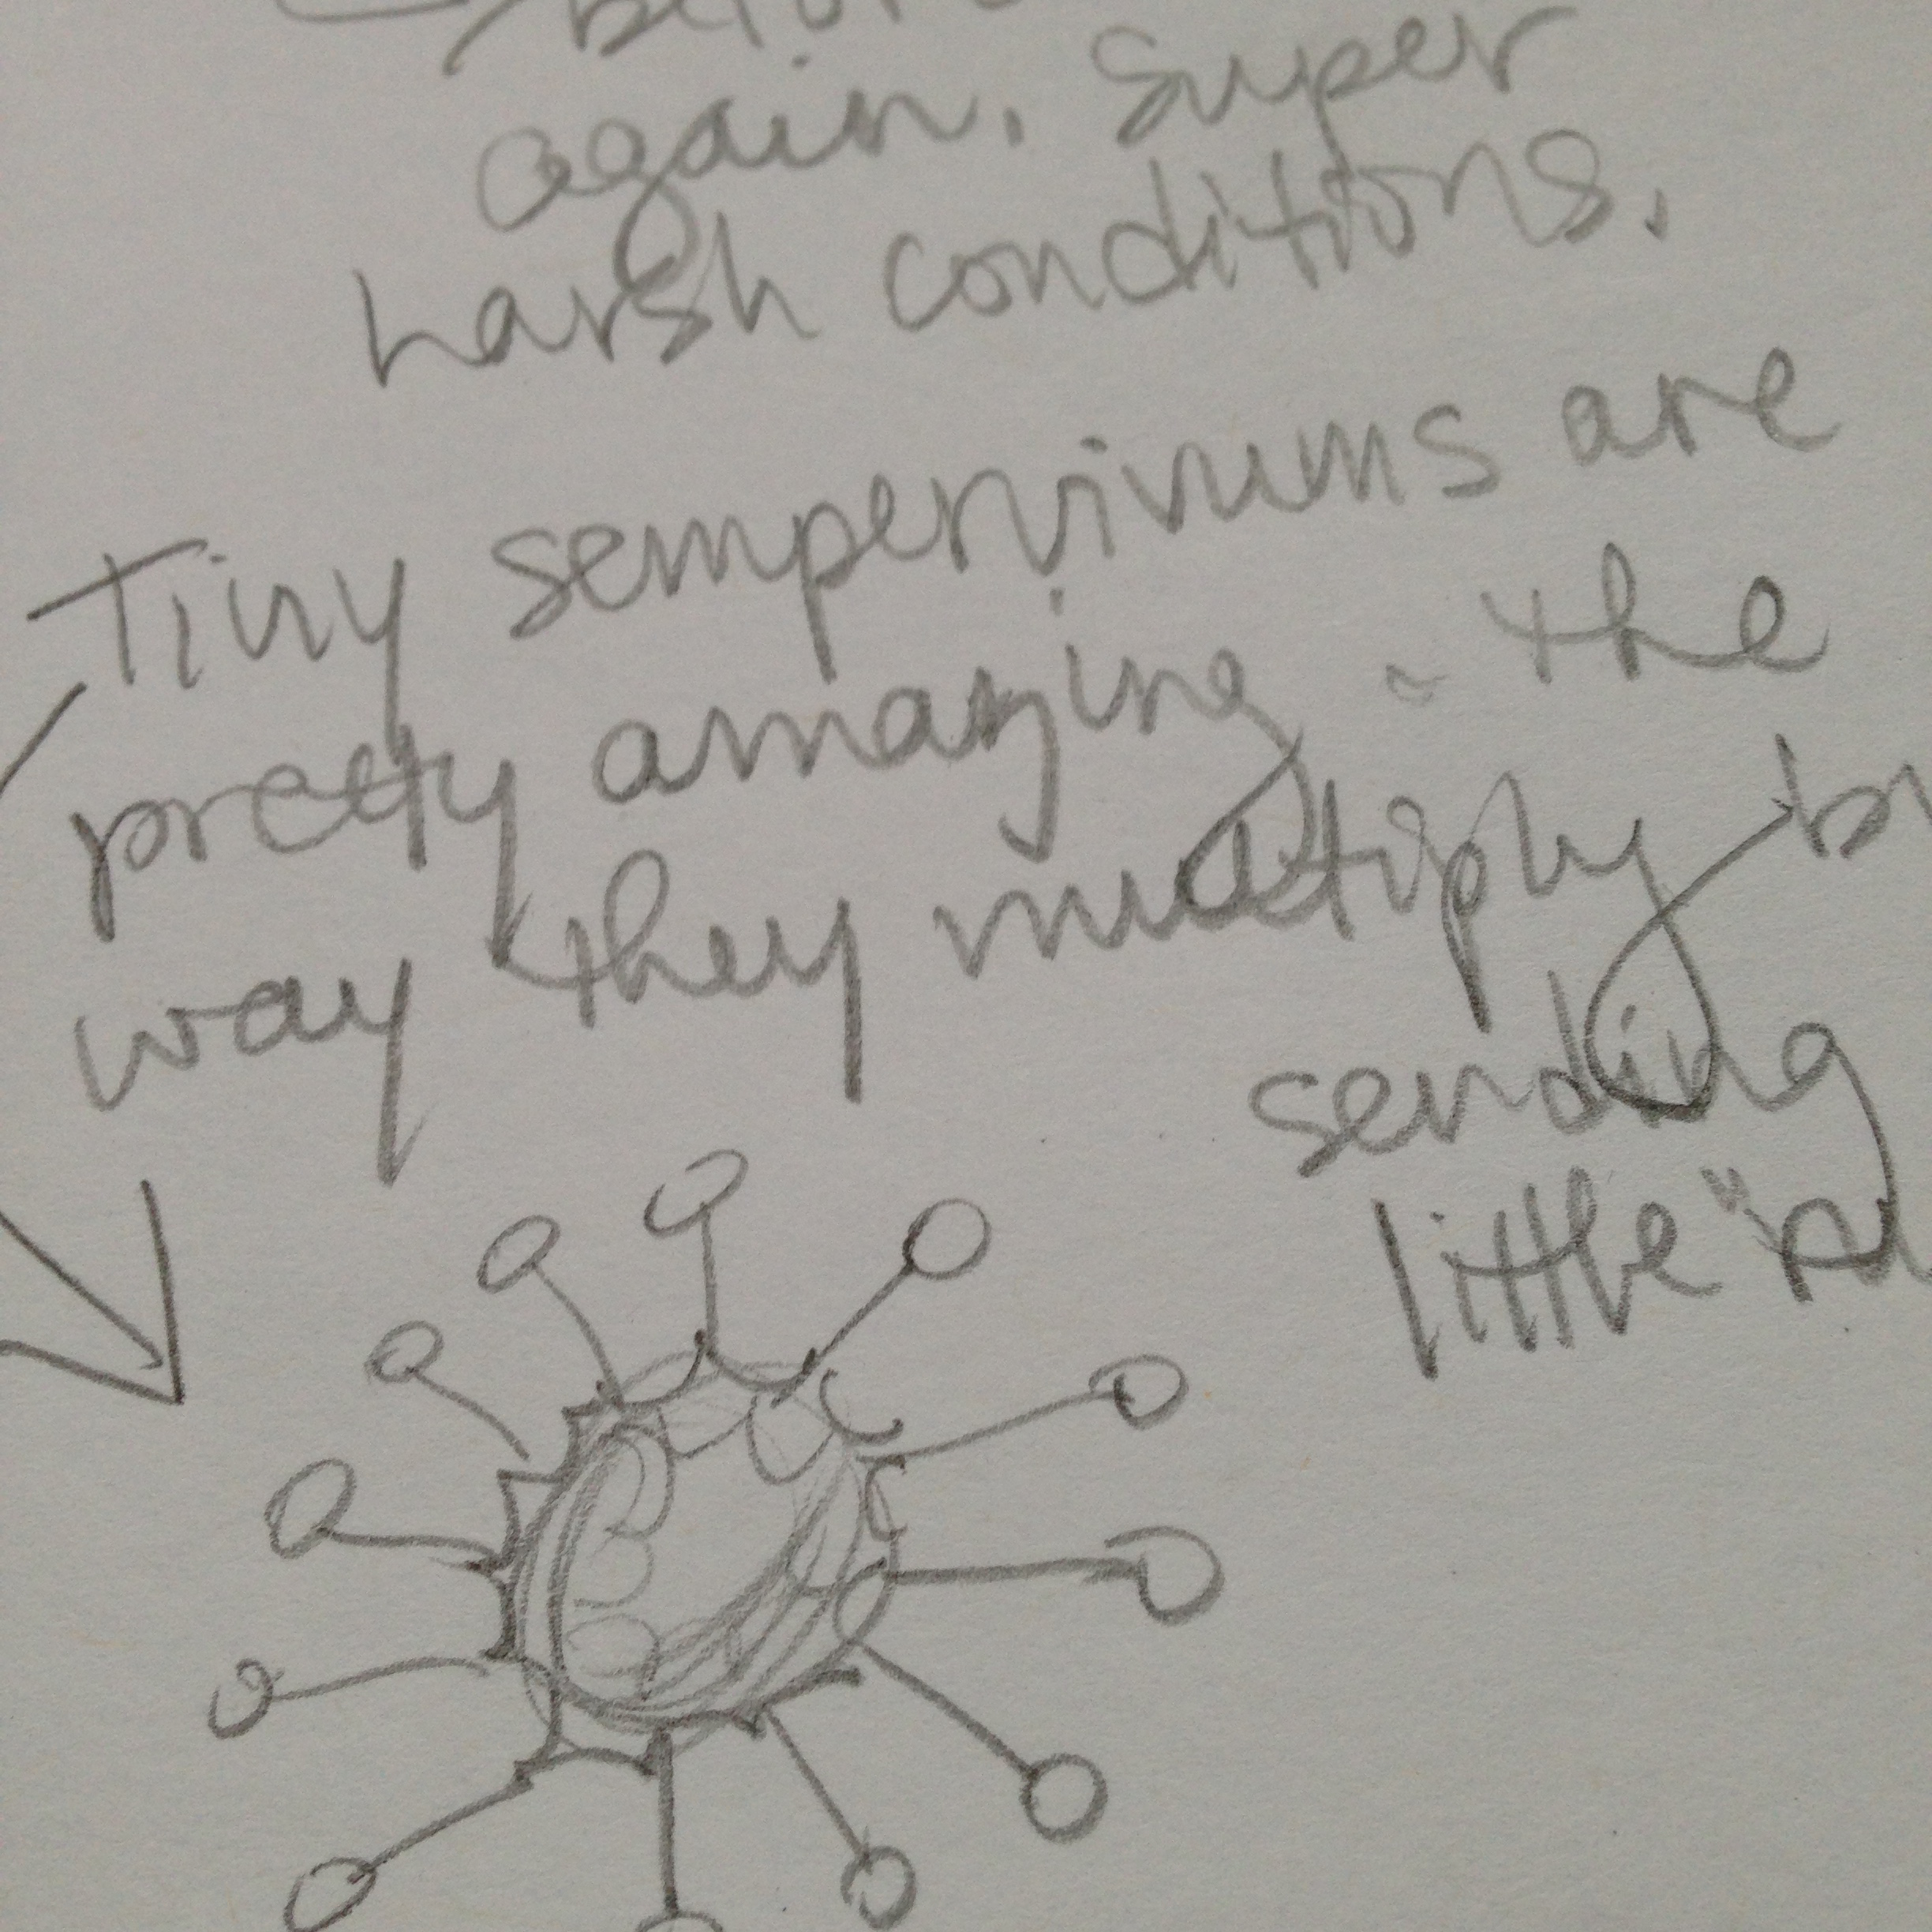 again. Super
harsh conditions.
Tiny sempervivums are
pretty amazing - the
way they multiply
sending
little "